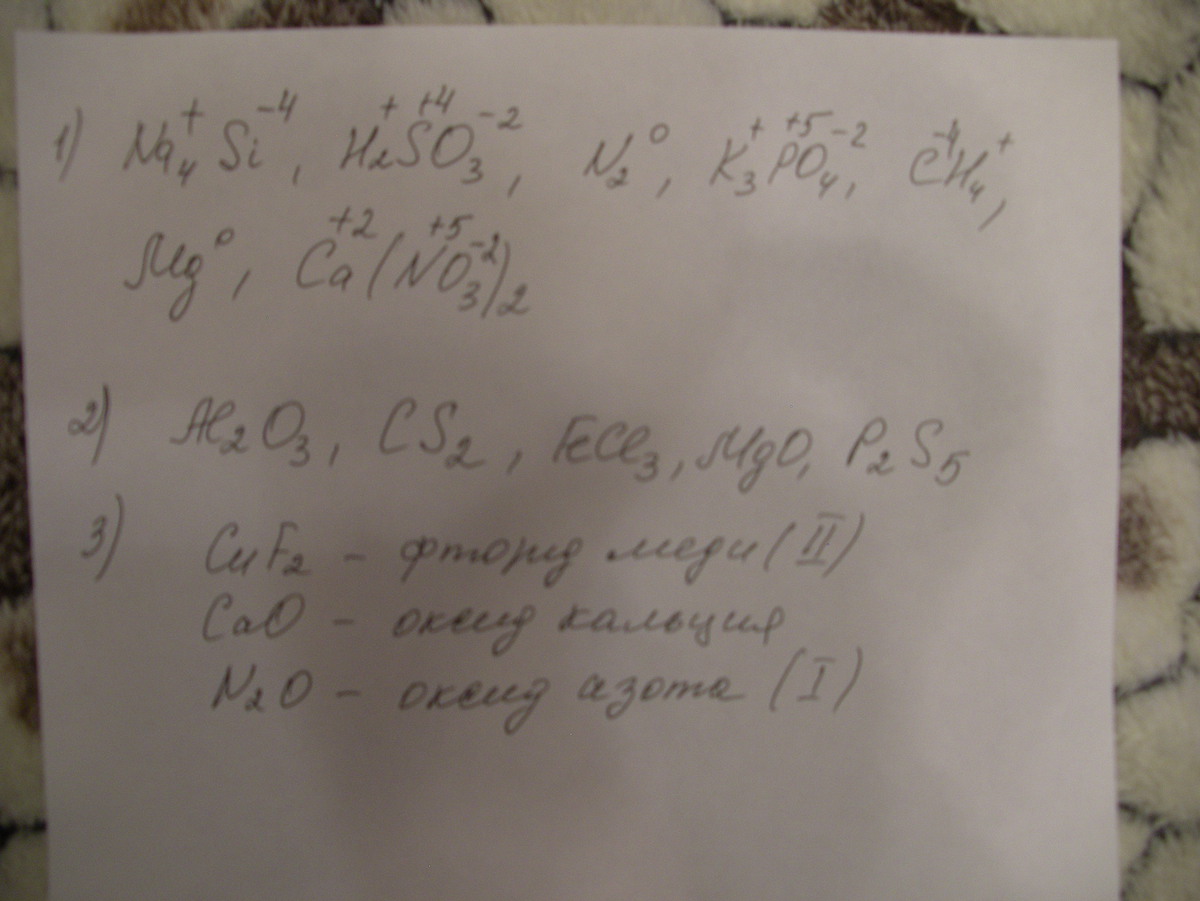 1) Na₄⁺Si⁻⁴, H₂⁺S⁺⁴O₃⁻², N₂⁰, K₃⁺P⁺⁵O₄⁻², C⁻⁴H₄⁺,
Mg⁰, Ca⁺²(N⁺⁵O₃⁻²)₂
2) Al₂O₃, CS₂, FeCl₃, MgO, P₂S₅
3) CuF₂ - фторид меди (II)
CaO - оксид кальция
N₂O - оксид азота (I)